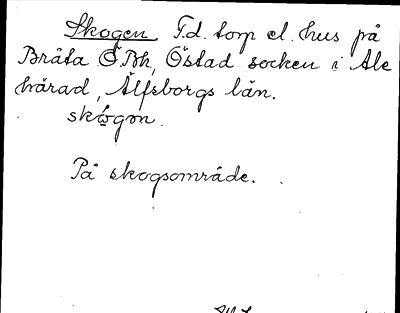 Skogen F.d. torp el. hus på
Bråta Ö.Bh, Östad socken i Ale
härad, Älfsborgs län.
skógon.
På skogsområde.